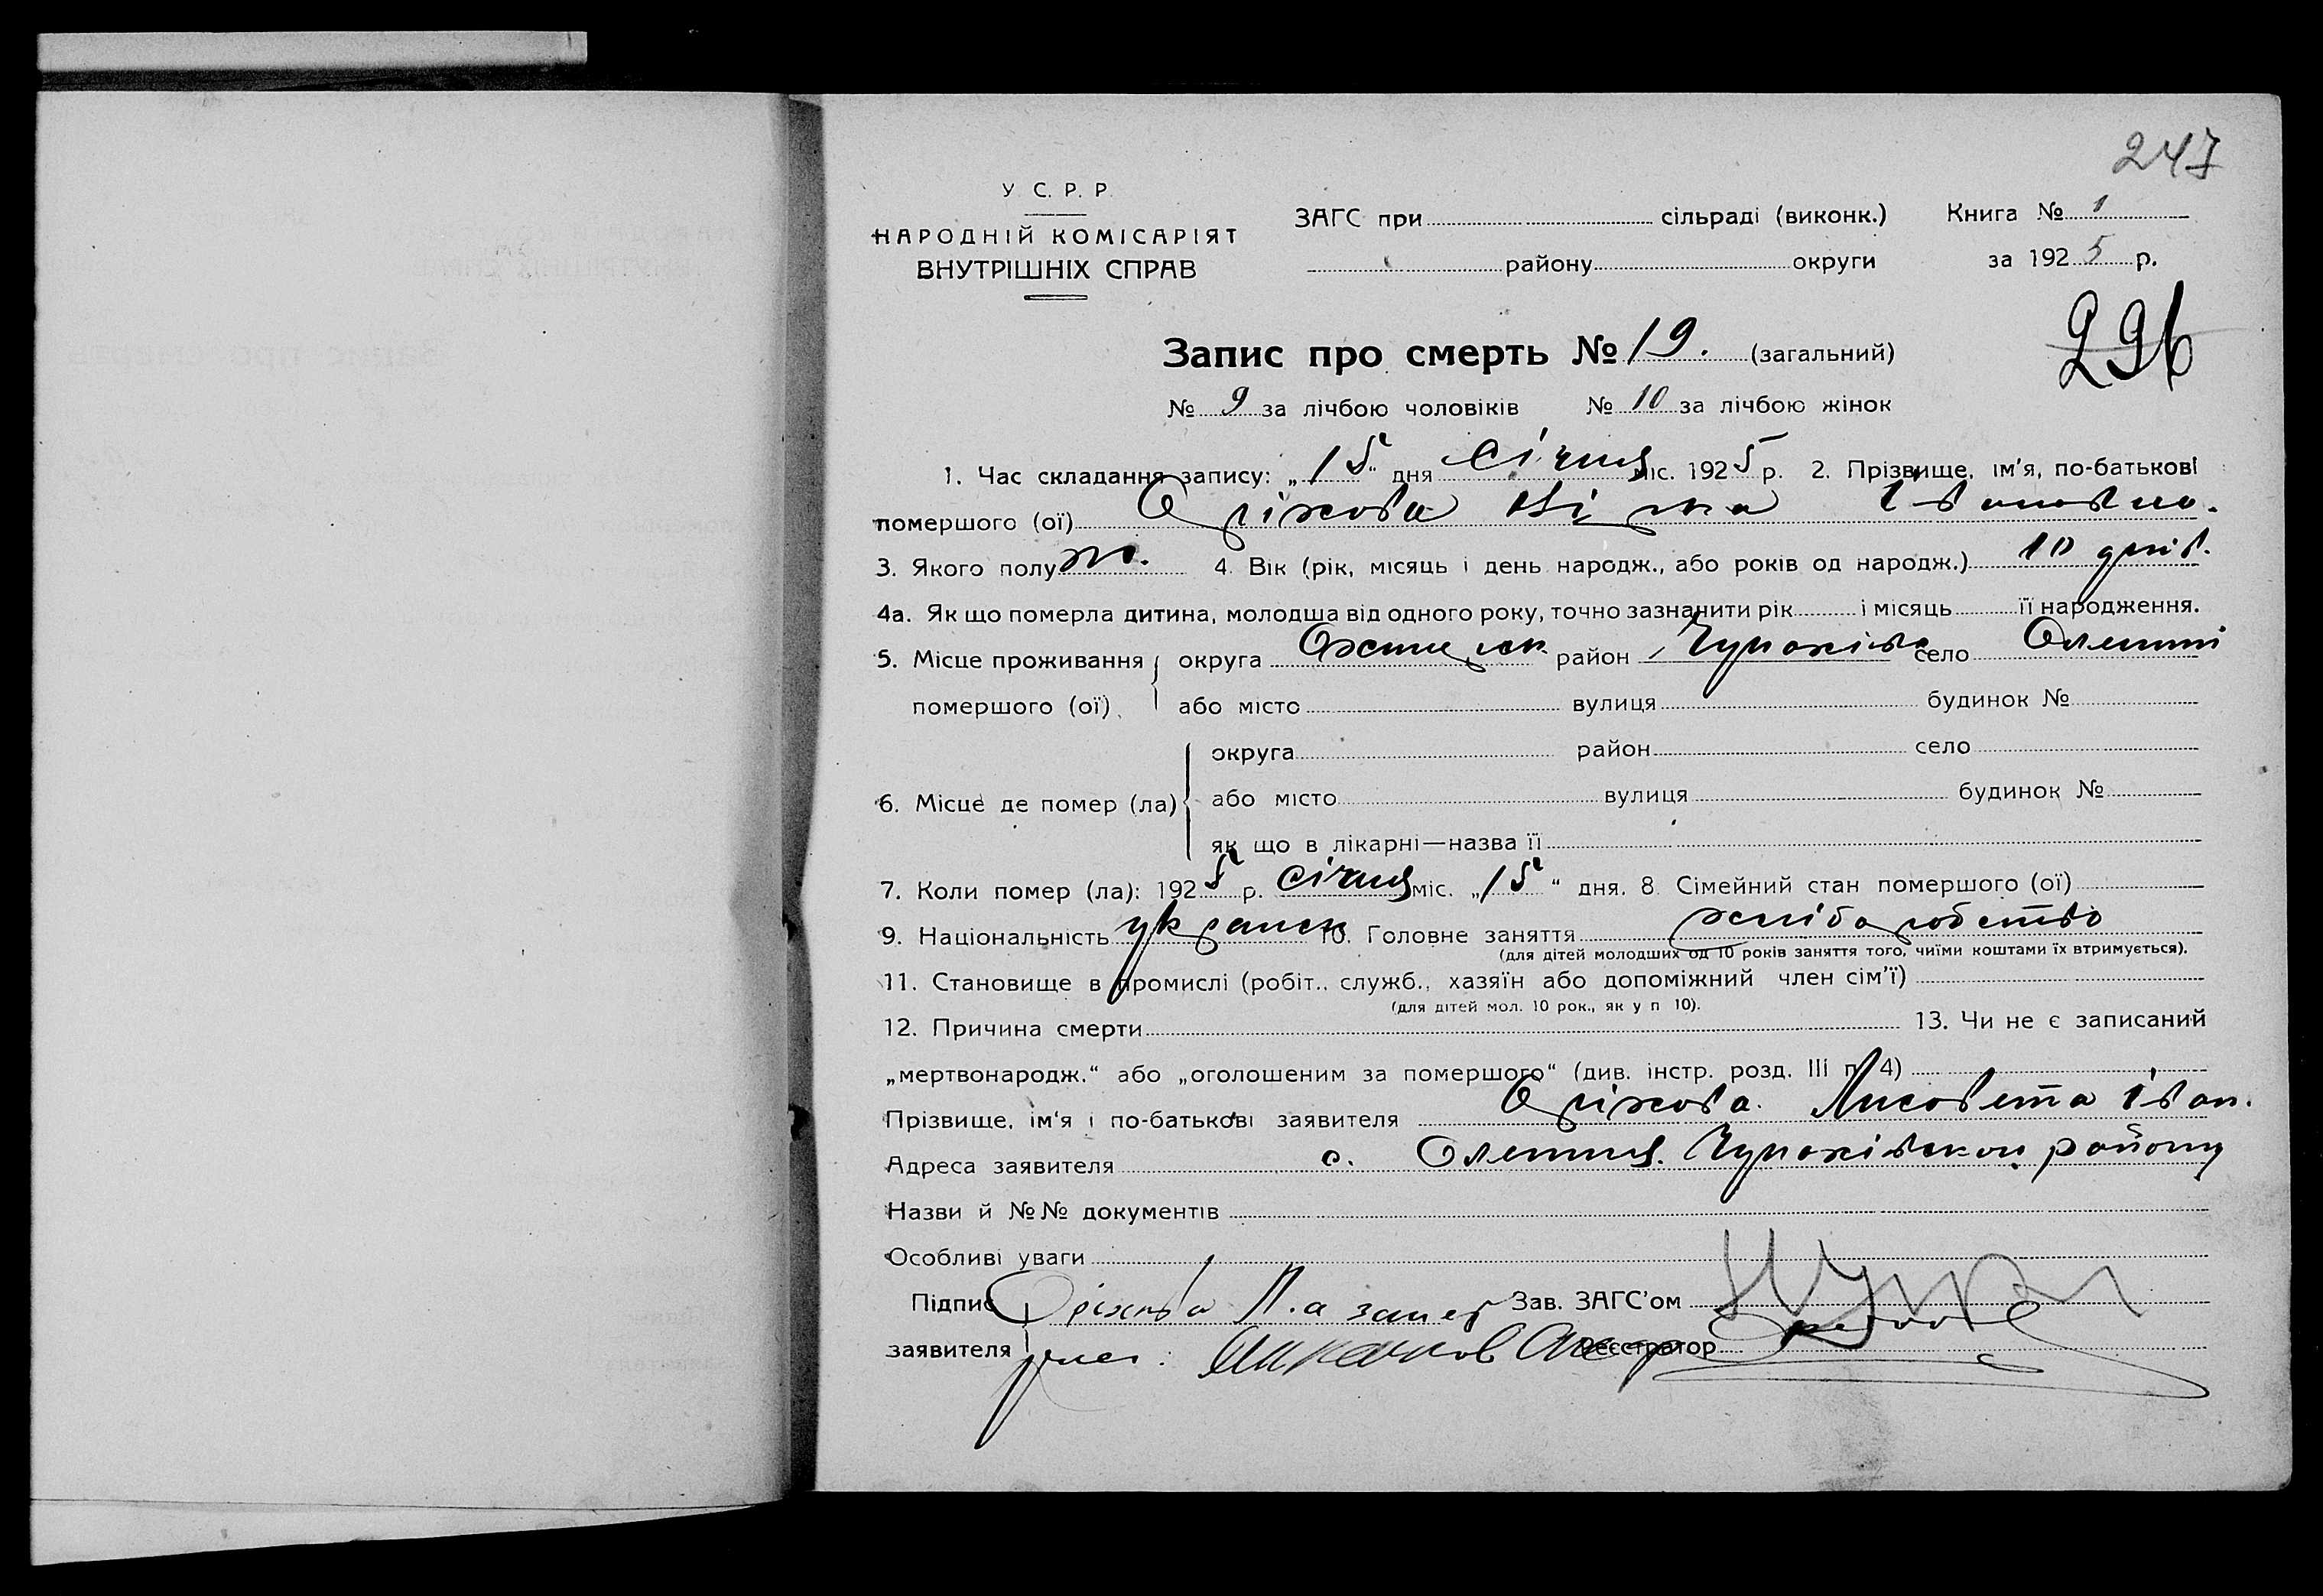 247
У. С. Р. Р.
НАРОДНІЙ КОМІСАРІЯТ
ВНУТРІШНІХ СПРАВ
ЗАГС при сільраді (виконк.)
району округи
Книга № 1
за 1925 р.
296
Запис про смерть № 19. (загальний)
№ 9 за лічбою чоловіків № 10 за лічбою жінок
1. Час складання запису: „15" дня Січня міс. 1925 р. 2. Прізвище, ім'я, по-батькові
помершого (ої) Оріхова Івановна.
3. Якого полу ж. 4. Вік (рік, місяць і день народж., або років од народж.) 10 днів.
4а. Як що померла дитина, молодша від одного року, точно зазначити рік і місяць її народження.
5. Місце проживання округа Охтирськ. район Чупахівс село Олешні
помершого (ої) або місто вулиця будинок №
округа район село
6. Місце де помер (ла) або місто вулиця будинок №
як що в лікарні—назва її
7. Коли помер (ла): 1925 р. Січня міс. „15" дня. 8. Сімейний стан помершого (ої)
9. Національність українск 10. Головне заняття хліборобство
(для дітей молодших од 10 років заняття того, чиїми коштами їх втримується).
11. Становище в промислі (робіт., служб., хазяїн або допоміжний член сім'ї)
(для дітей мол. 10 рок., як у п 10).
12. Причина смерти 13. Чи не є записаний
„мертвонародж." або „оголошеним за помершого" (див. інстр. розд. III п. 4)
Прізвище, ім'я і по-батькові заявителя Оріхова. Лисовета Іван.
Адреса заявителя с. Олешня. Чупахівскои району
Назви й №№ документів
Особливі уваги
Підпис Оріхова Л. а за неї Зав. ЗАГС'ом
заявителя Реєстратор